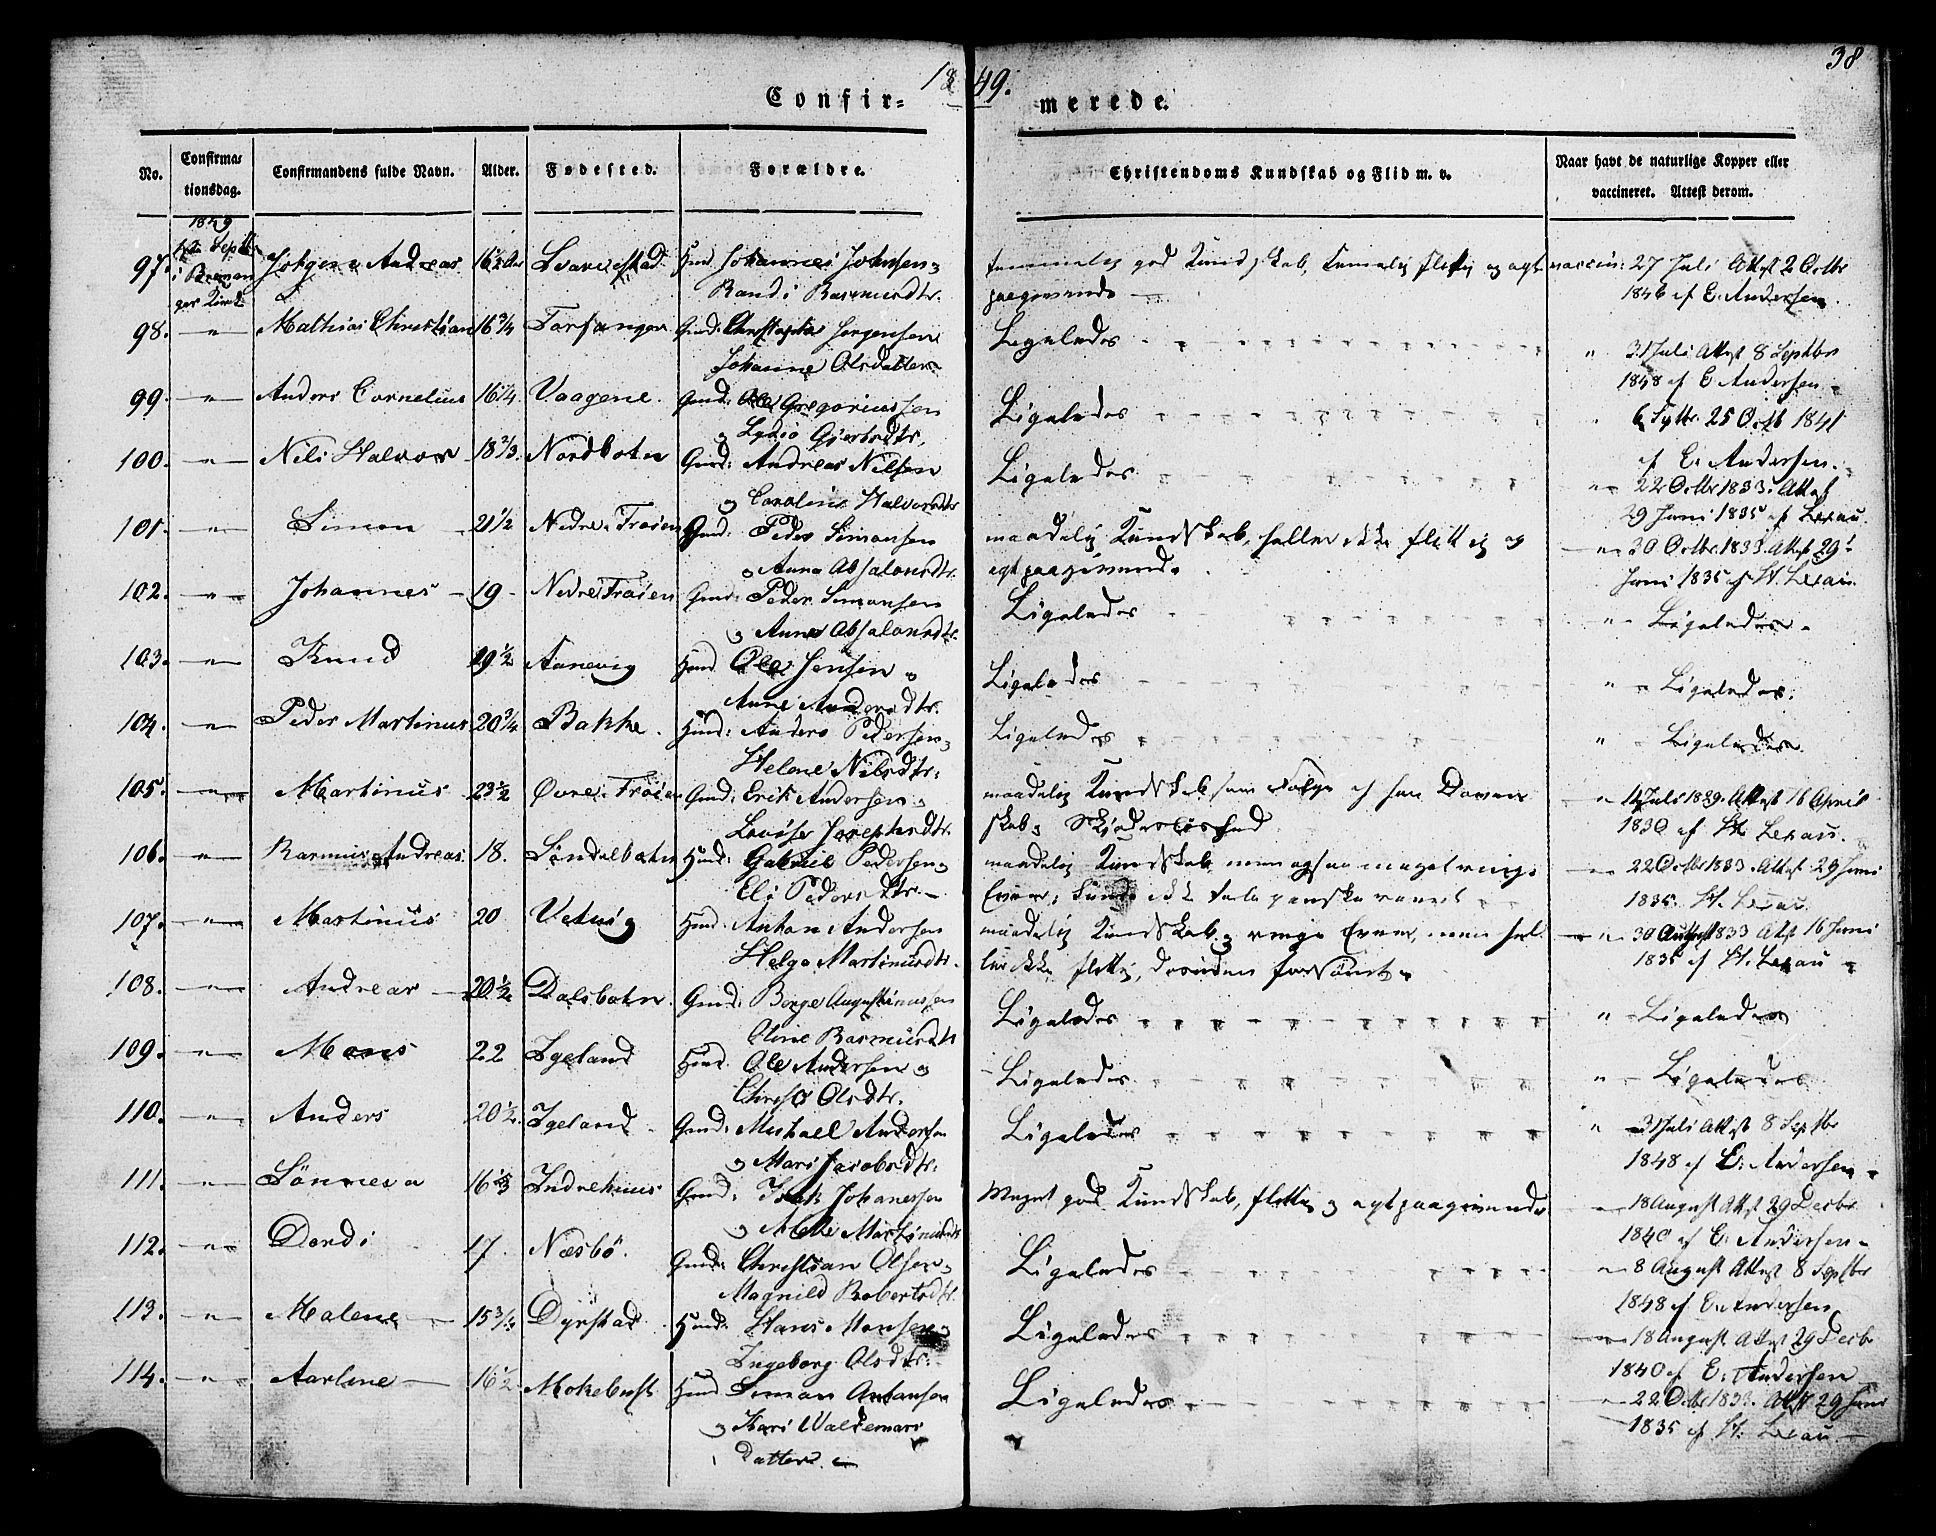 1849.
38
Confir= merede.
No. Confirmationsdag. Confirmandens fulde Navn. Alder. Fødested. Forældre. Christendoms Kundskab og Flid m. v. Naar havt de naturlige Kopper eller vaccineret. Attest derom.
1849
Septbr
i Breman
ger Kirke
97. Jørgen Andreas 16½ Aar Huusmd. Johannes Johnsen og
Randi Rasmusdtr.
god Kundskab, temmelig flittig og agt
paagivende
vaccin: 27 Juli Attest 2 Octbr
1846 af E. Andersen.
98. -"- Mathias Christian 16¾ Torfanger Gmd: Christopher Jørgensen
Johanne Olsdatter
Ligeledes
" 31 Juli Attest 8 Septbr
1848 af E Andersen
99. -"- Anders Cornelius 16¼ Vaagene. Gmd: Ole Gregoriussen
og Lydia Gjertsdtr.
Ligeledes
25 Octb 1841
af E. Andersen.
100. -"- Nils Halvor 18⅔ Nordbotn Gmd: Andreas Nilsen
og Caroline Halvorsdtr
Ligeledes
-"- 22 Octbr 1833. Attest
29 Juni 1835 af Lexau.
101. -"- Simon 21½ Nedre Frøien Gmd: Peder Simonsen
og Anna Absalonsdtr.
maadelig Kundskab, heller ikke flittig og
agtpaagivende
-"- 30 Octbr. 1833. Attest 29
Juni 1835 af St. Lexau.
102. -"- Johannes 19 Nedre Frøien Gmd: Peder Simonsen
og Anna Absalonsdtr.
Ligeledes
" Ligeledes
103. -"- Knud 19½ Aanevig Huusmd Ole Jensen og
Anne Andersdtr.
Ligeledes
" Ligeledes.
104. -"- Peder Martinus 20¾ Bakke. Huusmd: Anders Pedersen og
Helene Nilsdtr.
Ligeledes
" Ligeledes.
105. -"- Martinus 23½ Øvre Frøien Gmd: Erik Andersen og
Lovise Josephsdtr.
maadelig Kundskab som Følge af hans Doven
skab og Skjødesløshed
Juli 1829. Attest 16 April
1830 af St. Lexau.
106. -"- Rasmus Andreas 18. Søndalbotn Huusmd: Gabriel Pedersen og
Eli Pedersdtr.
maadelig Kundskab, men ogsaa meget ringe
Evner, kunde ikke tale
-"- 22 Octbr 1833. Attest 29 Juni
1835. St. Lexau.
107. -"- Martinus 20 Vetvig Huusmd: Anton Andersen
Helga Martinusdtr.
maadelig Kundskab og ringe Evner, men hel
ler ikke flittig, desuden forsømt
-"- 30 August 1833 Attest 16 Juni
1835 af St. Lexau
108. -"- Andreas 20½ Dalsbotn. Gmd: Børge Augustinussen
Oline Rasmusdtr
Ligeledes
" Ligeledes
109. -"- Mons 22 Igeland Huusmd. Ole Andersen og
Olsdtr.
Ligeledes
" Ligeledes
110. -"- Anders 20½ Igeland Gmd: Michael Andersen
og Mari Jacobsdtr.
Ligeledes
" 31 Juli Attest 8 Septbr
1848 af E. Andersen
111. -"- Sønneva 16⅔ Indrehuus Gmd: Isak Johanessen
og Mette Martinusdtr
Meget god Kundskab, flittig og agtpaagivende
-"- 18 August Attest 29 Decbr
1840 af E. Andersen
112. -"- Dordi 17. Næsbø. Gmd: Christian Olsen og
Magnild Robertsdtr.
Ligeledes
-"- 8 August Attest 8 Septbr
1848 af E. Andersen
113. -"- Malene 15¾ Dyrstad Huusmd: Hans Monsen og
Ingeborg Olsdtr.
Ligeledes
-"- 18 August. Attest 29 Decbr
1840 af E. Andersen
114. -"- Aarline 16½ Mokebust Huusmd Simon Antonsen
og Kari Waldemars
Datter.
Ligeledes
-"- 22 Octbr 1833. Attest 29 Juni
1835 af St. Lexau.